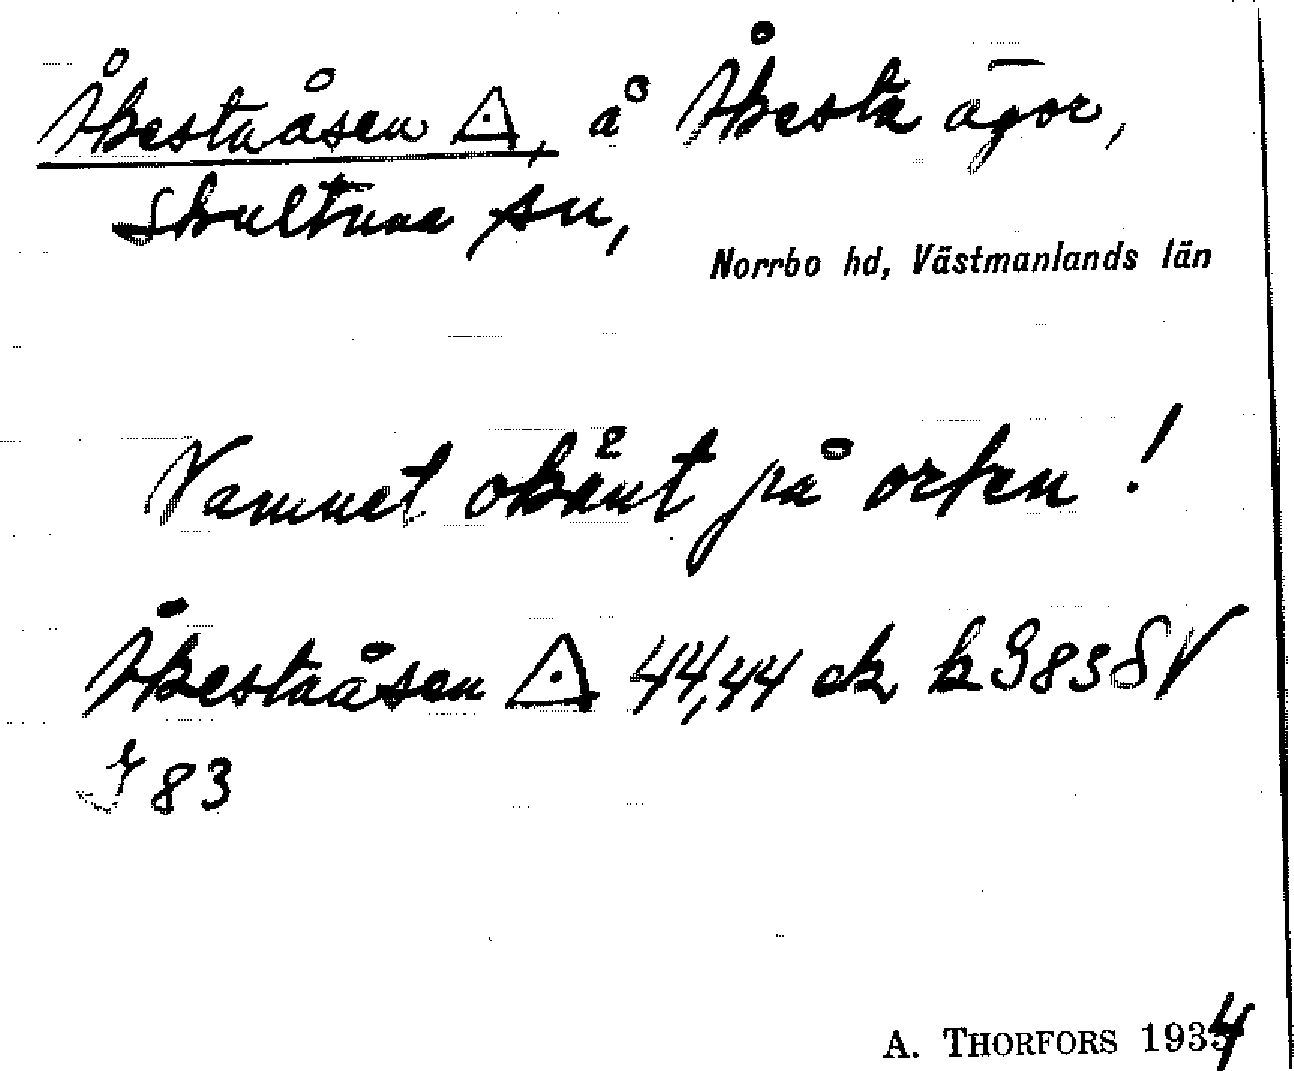 Åkestaåsen ⟁, å Åkesta ägor,
Skultuna sn,
Norrbo hd, Västmanlands län
Namnet okänt på orten!
Åkestaåsen ⟁ 44,44 ek k G83SV
J83
A. THORFORS 1934